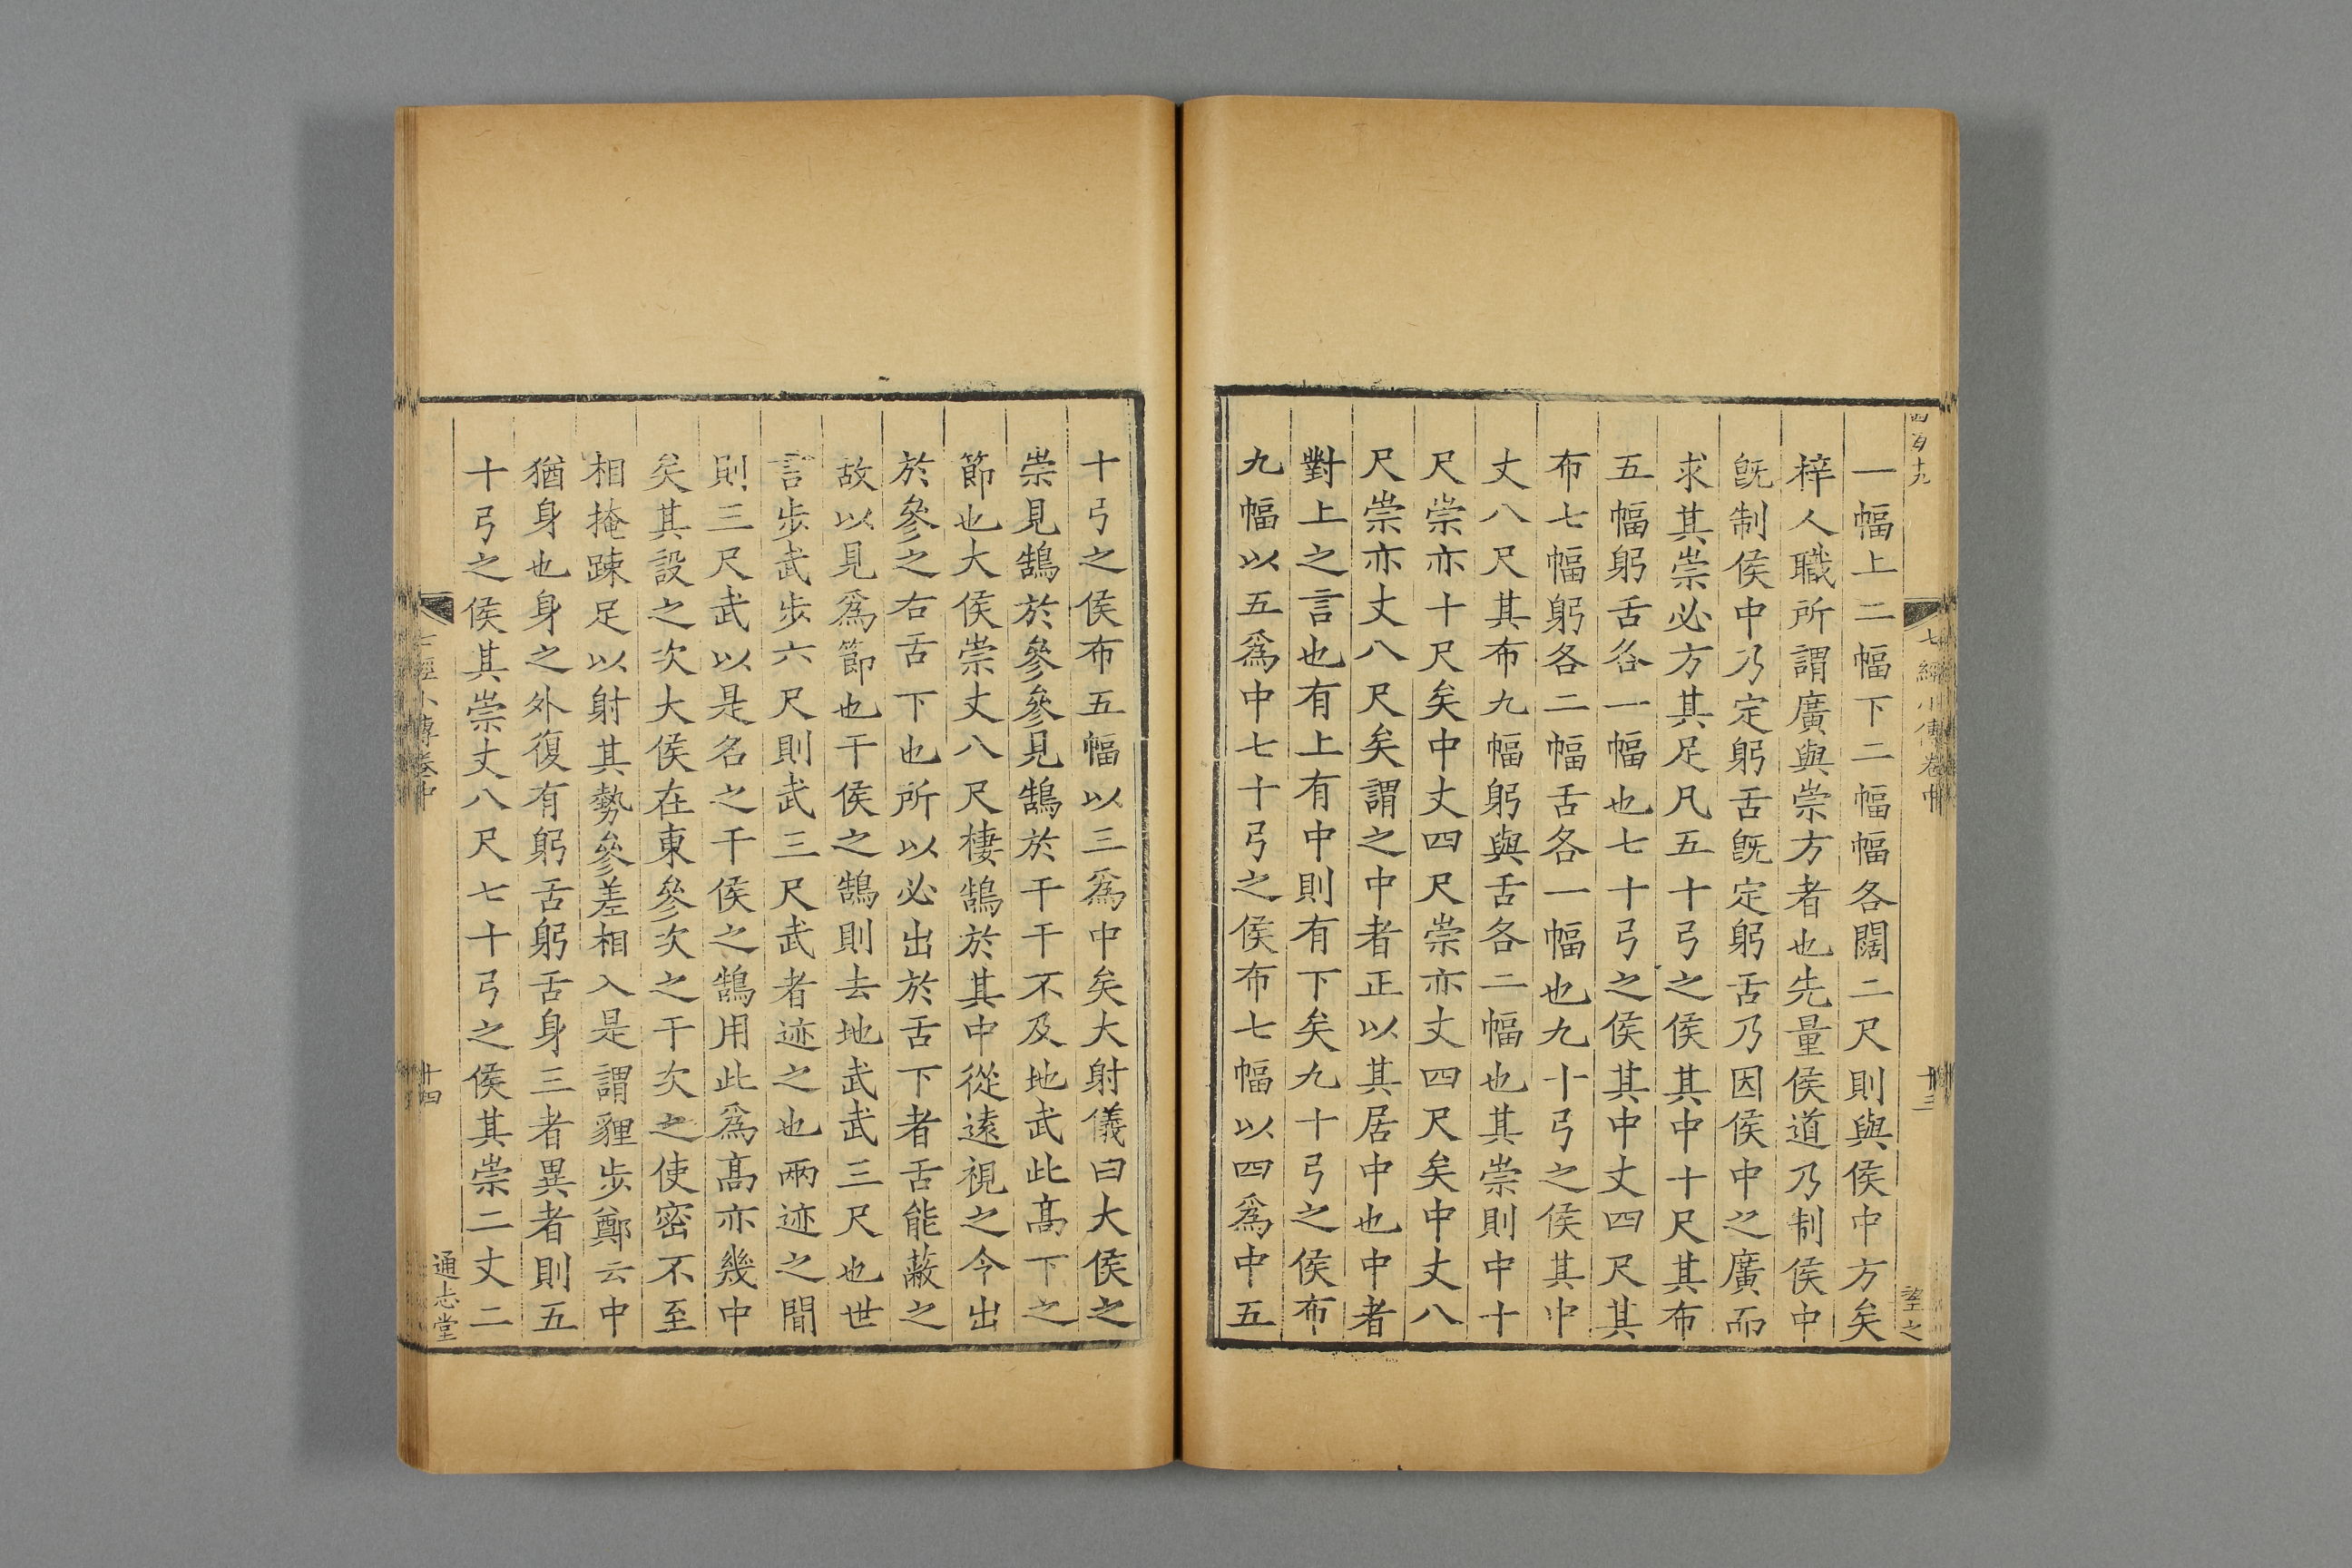 四百十九
七經小傳卷中
十三
一幅上二幅下二幅幅各闊二尺則與侯中方矣
梓人職所謂廣與崇方者也先量侯道乃制侯中
旣制侯中乃定躬舌旣定躬舌乃因侯中之廣而
求其崇必方其足凡五十弓之侯其中十尺其布
五幅躬舌各一幅也七十弓之侯其中丈四尺其
布七幅躬各二幅舌各一幅也九十弓之侯其中
丈八尺其布九幅躬與舌各二幅也其崇則中十
尺崇亦十尺矣中丈四尺崇亦丈四尺矣中丈八
尺崇亦丈八尺矣謂之中者正以其居中也中者
對上之言也有上有中則有下矣九十弓之侯布
九幅以五爲中七十弓之侯布七幅以四爲中五
十弓之侯布五幅以三爲中矣大射儀曰大侯之
崇見鵠於參參見鵠於干干不及地武此高下之
節也大侯崇丈八尺棲鵠於其中從遠視之今出
於參之右舌下也所以必出於舌下者舌能蔽之
故以見爲節也干侯之鵠則去地武武三尺也世
言步武步六尺則武三尺武者迹之也兩迹之間
則三尺武以是名之干侯之鵠用此爲高亦幾中
矣其設之次大侯在東參次之干次之使密不至
相掩踈足以射其勢參差相入是謂貍步鄭云中
猶身也身之外復有躬舌躬舌身三者異者則五
十弓之侯其崇丈八尺七十弓之侯其崇二丈二
七經小傳卷中
十四
通志堂